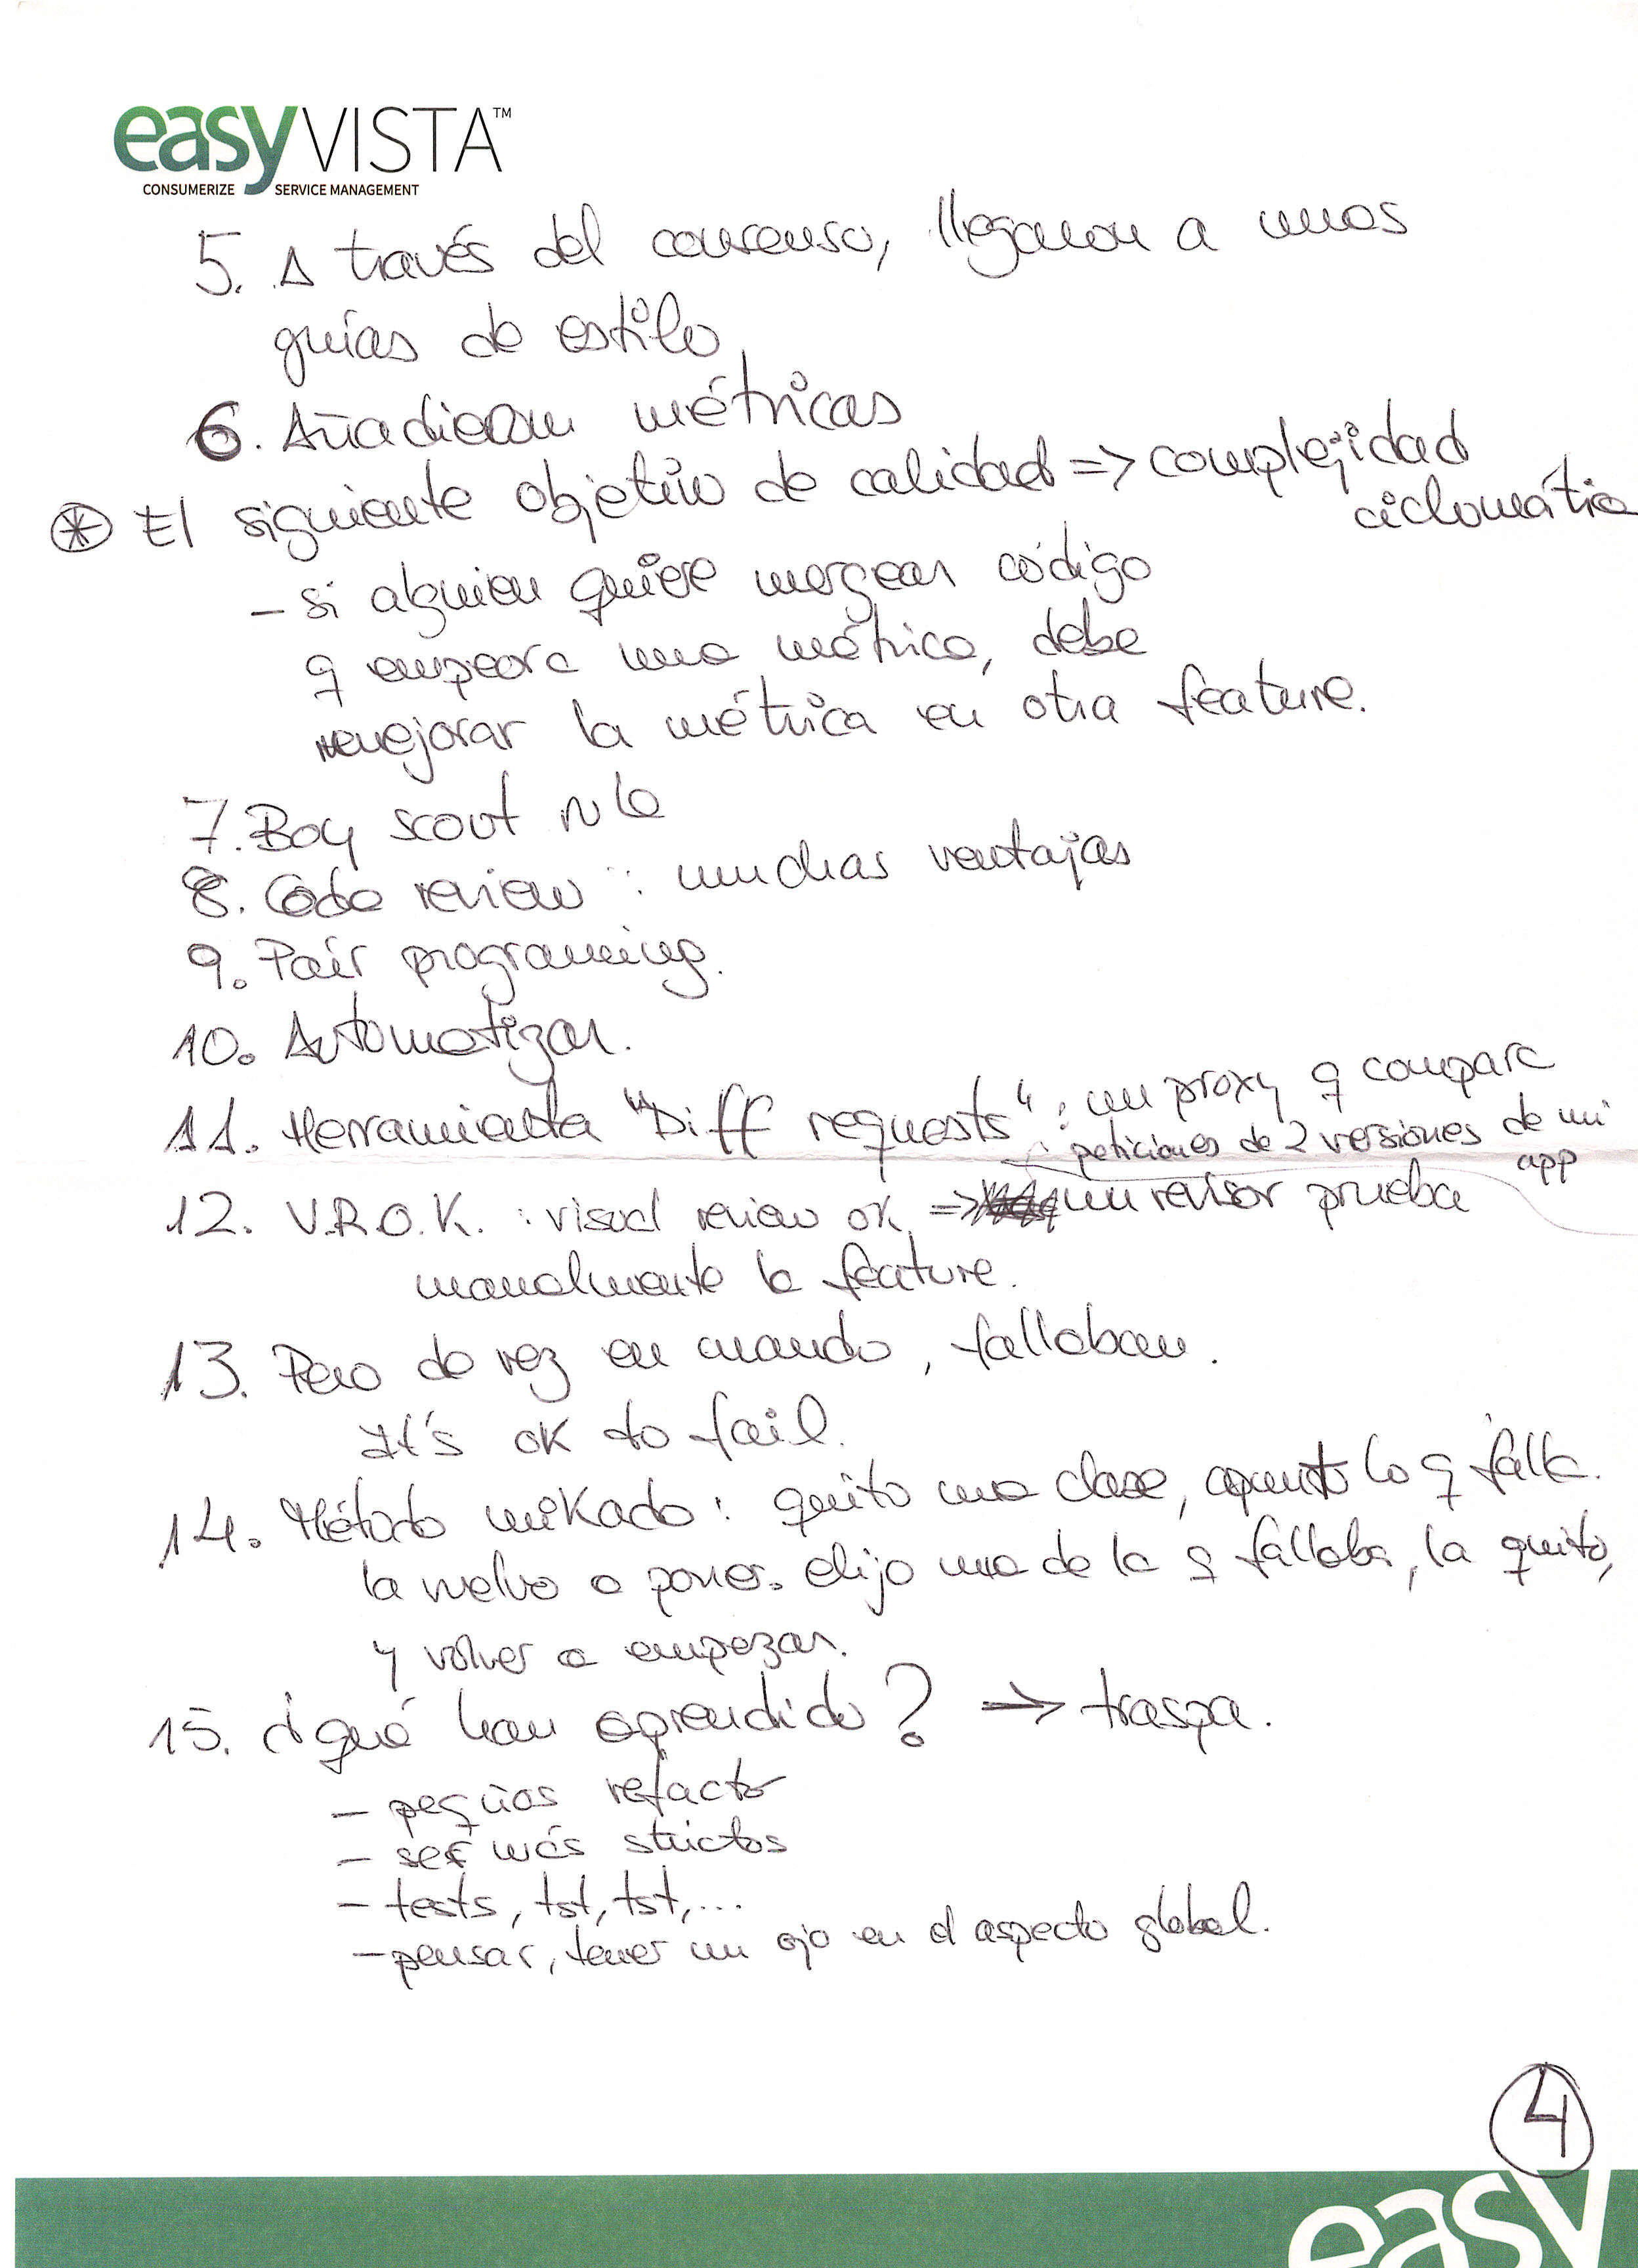 easyVISTA™
CONSUMERIZE SERVICE MANAGEMENT
5. A través del consenso, llegaron a unas
guías de estilo
6. Añadieron métricas
* El siguiente objetivo de calidad => complejidad
ciclomática
- si alguien quiere mergear código
q empeora una métrica, debe
mejorar la métrica en otra feature.
7. Boy scout rule
8. Code review : muchas ventajas
9. Pair programing.
10. Automatizar.
11. Herramienta "Diff requests" : un proxy q compara
peticiones de 2 versiones de mi
app
12. V.R.O.K. : visual review ok => un revisor prueba
manualmente la feature.
13. Pero de vez en cuando, fallaban.
It's ok to fail.
14. Método mikado: quito una clase, apunto lo q falla.
la vuelvo a poner. elijo una de la q fallaba, la quito,
y volver a empezar.
15. ¿qué han aprendido? → traspa.
- peqños refactor
- ser más strictos
- tests, tst, tst, ...
- pensar, tener un ojo en el aspecto global.
4
easy